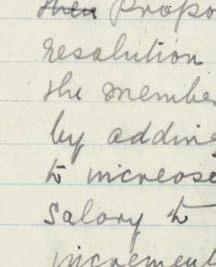 then Propo
resolution
the membe
by adding
to increase
Salary to
increment